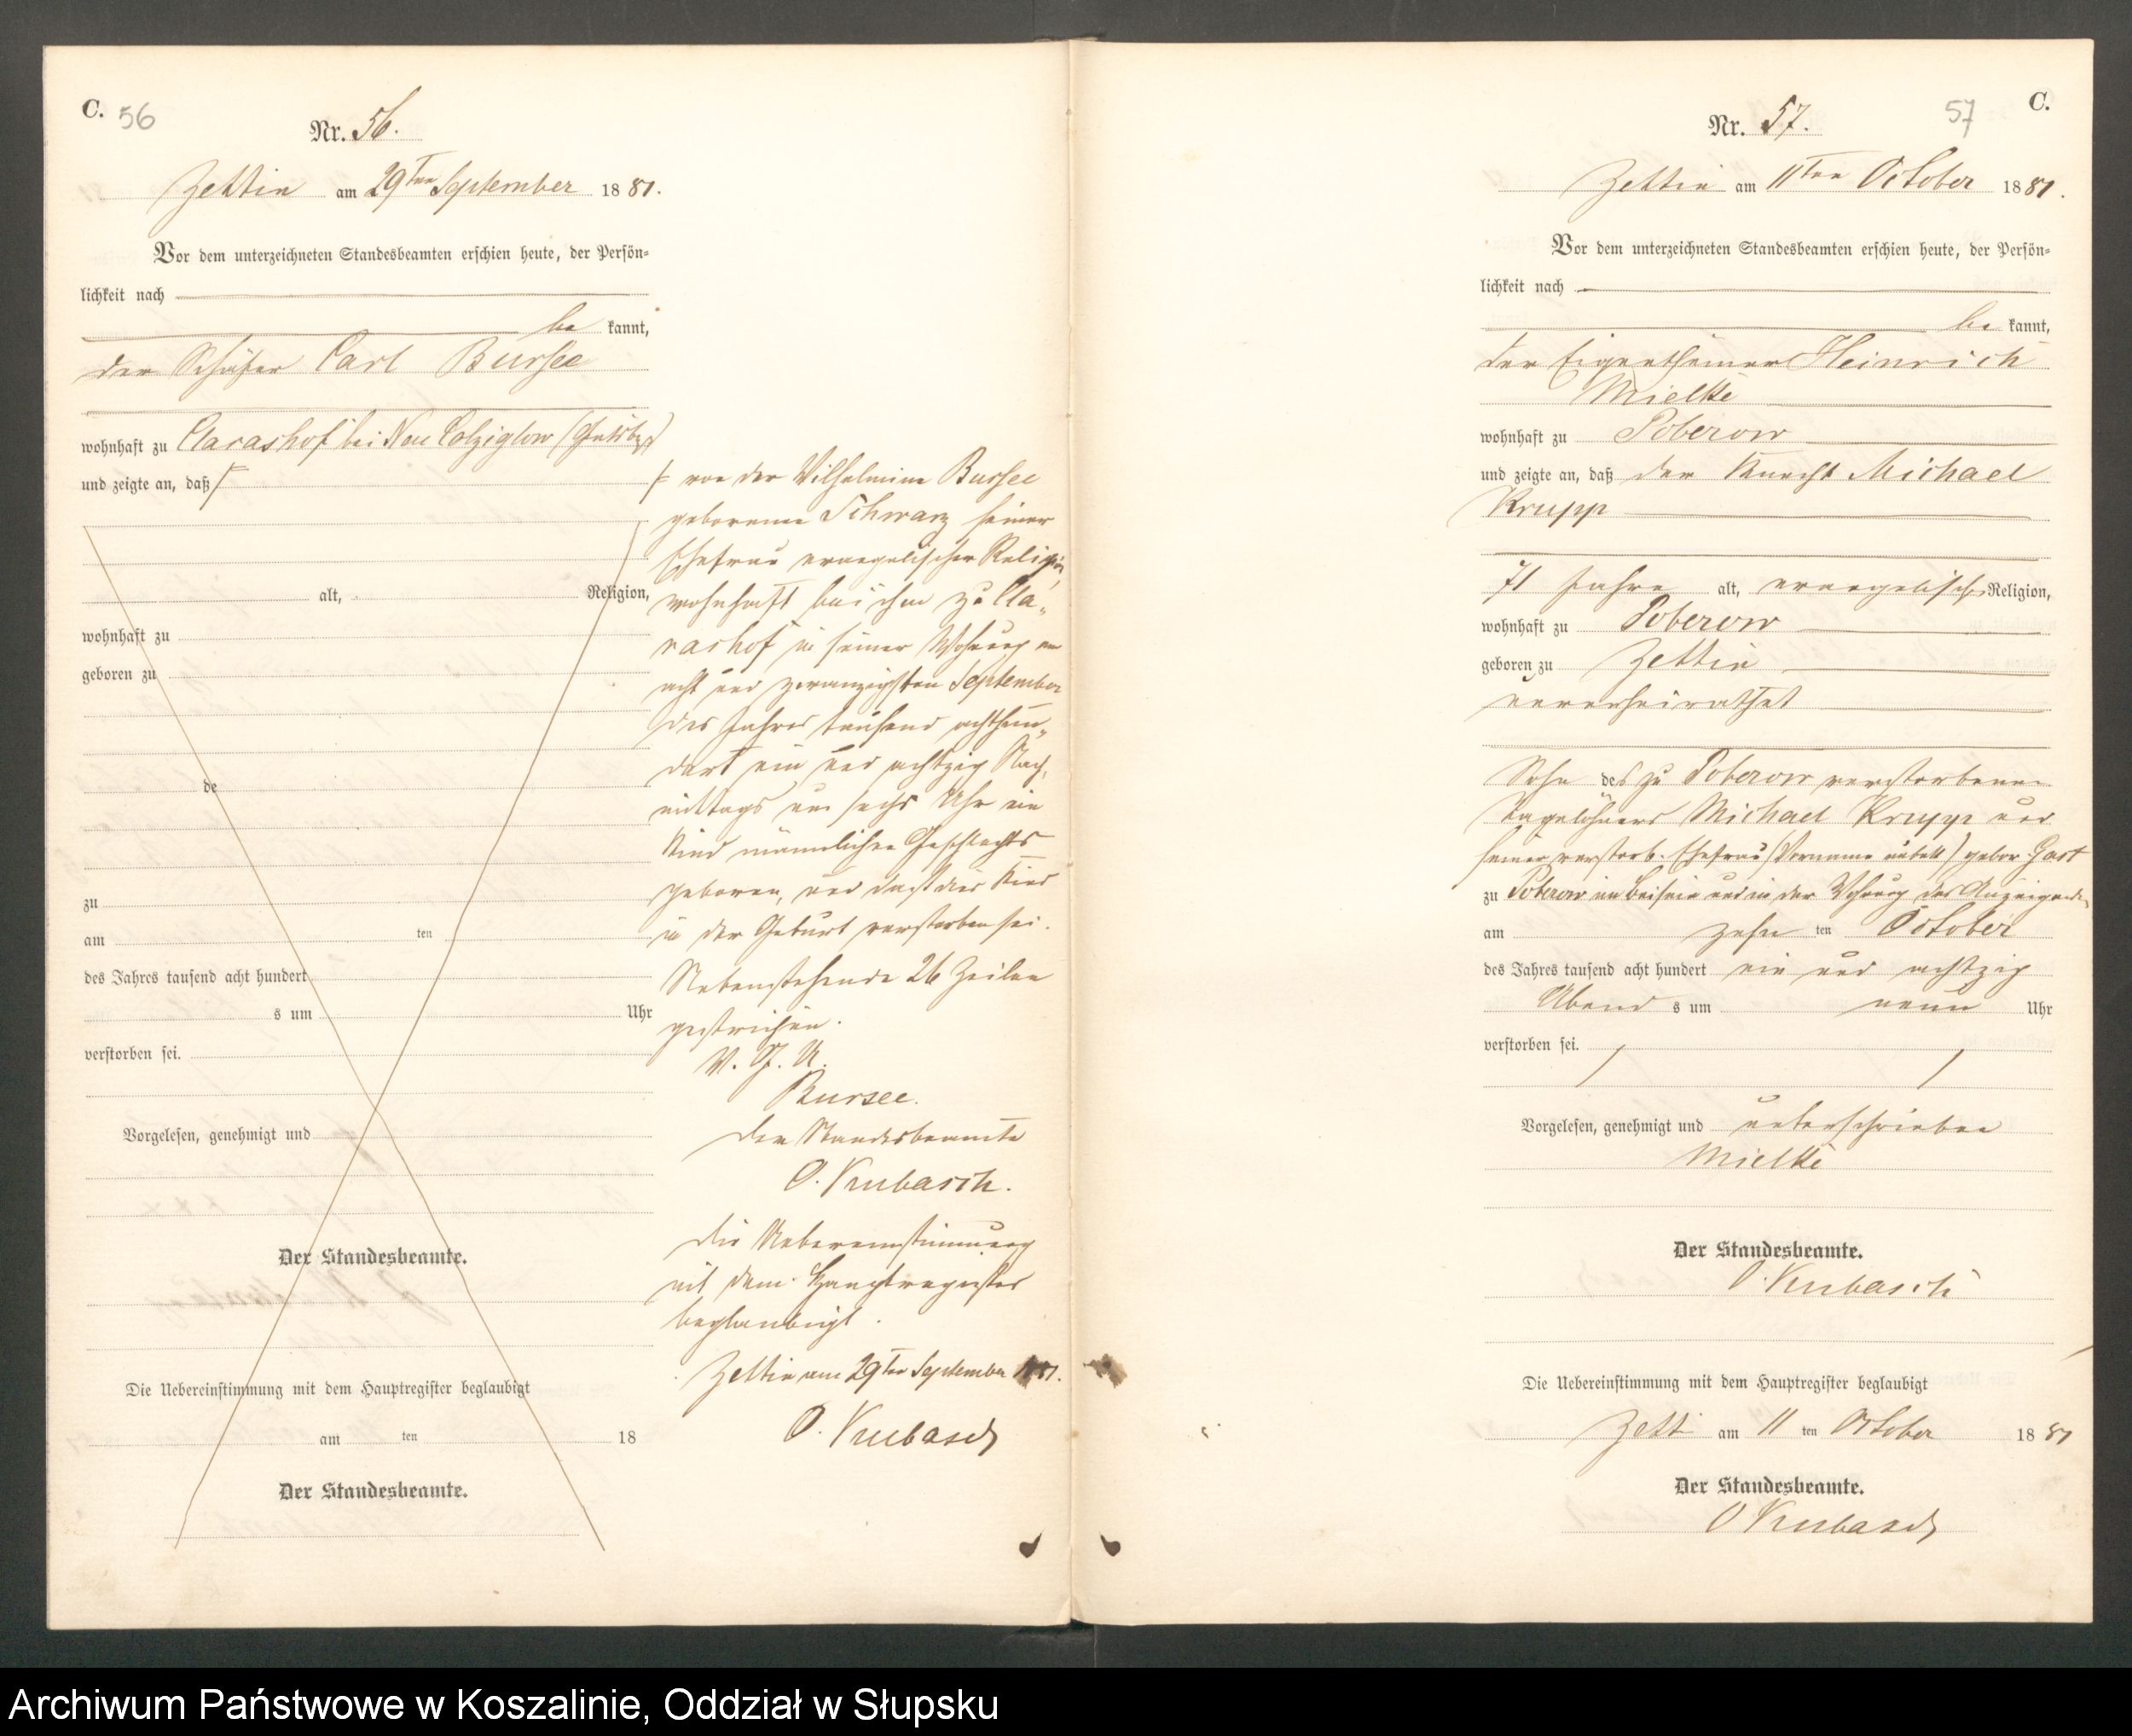 C. 56
Nr. 56.
Zettin am 29ten September 1881.
Vor dem unterzeichneten Standesbeamten erschien heute, der Persön-
lichkeit nach
be kannt,
der Schäfer Carl Bursee
wohnhaft zu Clarashof bei Neu Colziglow
und zeigte an, daß
alt, Religion,
wohnhaft zu
geboren zu
de
zu
am ten
des Jahres tausend acht hundert
s um Uhr
verstorben sei.
Vorgelesen, genehmigt und
Der Standesbeamte.
Die Uebereinstimmung mit dem Hauptregister beglaubigt
am ten 18
Der Standesbeamte.
von der Wilhelmine Bursee
geborenen Schwarz seiner
Ehefrau evangelischer Religion,
wohnhaft bei ihm zu Cla-
rashof in seiner Wohnung am
acht und zwanzigsten September
des Jahres tausend achthun-
dert ein und achtzig Nach-
mittags um sechs Uhr ein
Kind männlichen Geschlechts
geboren, und daß dies Kind
in der Geburt verstorben sei.
Nebenstehende 26 Zeilen
gestrichen.
V. G. U.
Bursee.
Der Standesbeamte
O. Kubasch.
Die Uebereinstimmung
mit dem Hauptregister
beglaubigt.
Zettin am 29ten September 1881.
O. Kubasch
57 C.
Nr. 57.
Zettin am 11ten October 1881.
Vor dem unterzeichneten Standesbeamten erschien heute, der Persön-
lichkeit nach
be kannt,
der Eigenthümer Heinrich
Mielke
wohnhaft zu Poberow
und zeigte an, daß der Knecht Michael
Krupp
71 Jahre alt, evangelischer Religion,
wohnhaft zu Poberow
geboren zu Zettin
unverheirathet
Sohn des zu Poberow verstorbenen
Tagelöhners Michael Krupp und
seiner verstorb. Ehefrau (Vorname unbek) gebor. Gast
zu Poberow im Beisein und in der Wohnung des Anzeigenden
am zehn ten October
des Jahres tausend acht hundert ein und achtzig
Abend s um neun Uhr
verstorben sei.
Vorgelesen, genehmigt und unterschrieben
Mielke
Der Standesbeamte.
O. Kubasch
Die Uebereinstimmung mit dem Hauptregister beglaubigt
Zettin am 11 ten October 1881
Der Standesbeamte.
O Kubasch
Archiwum Państwowe w Koszalinie, Oddział w Słupsku